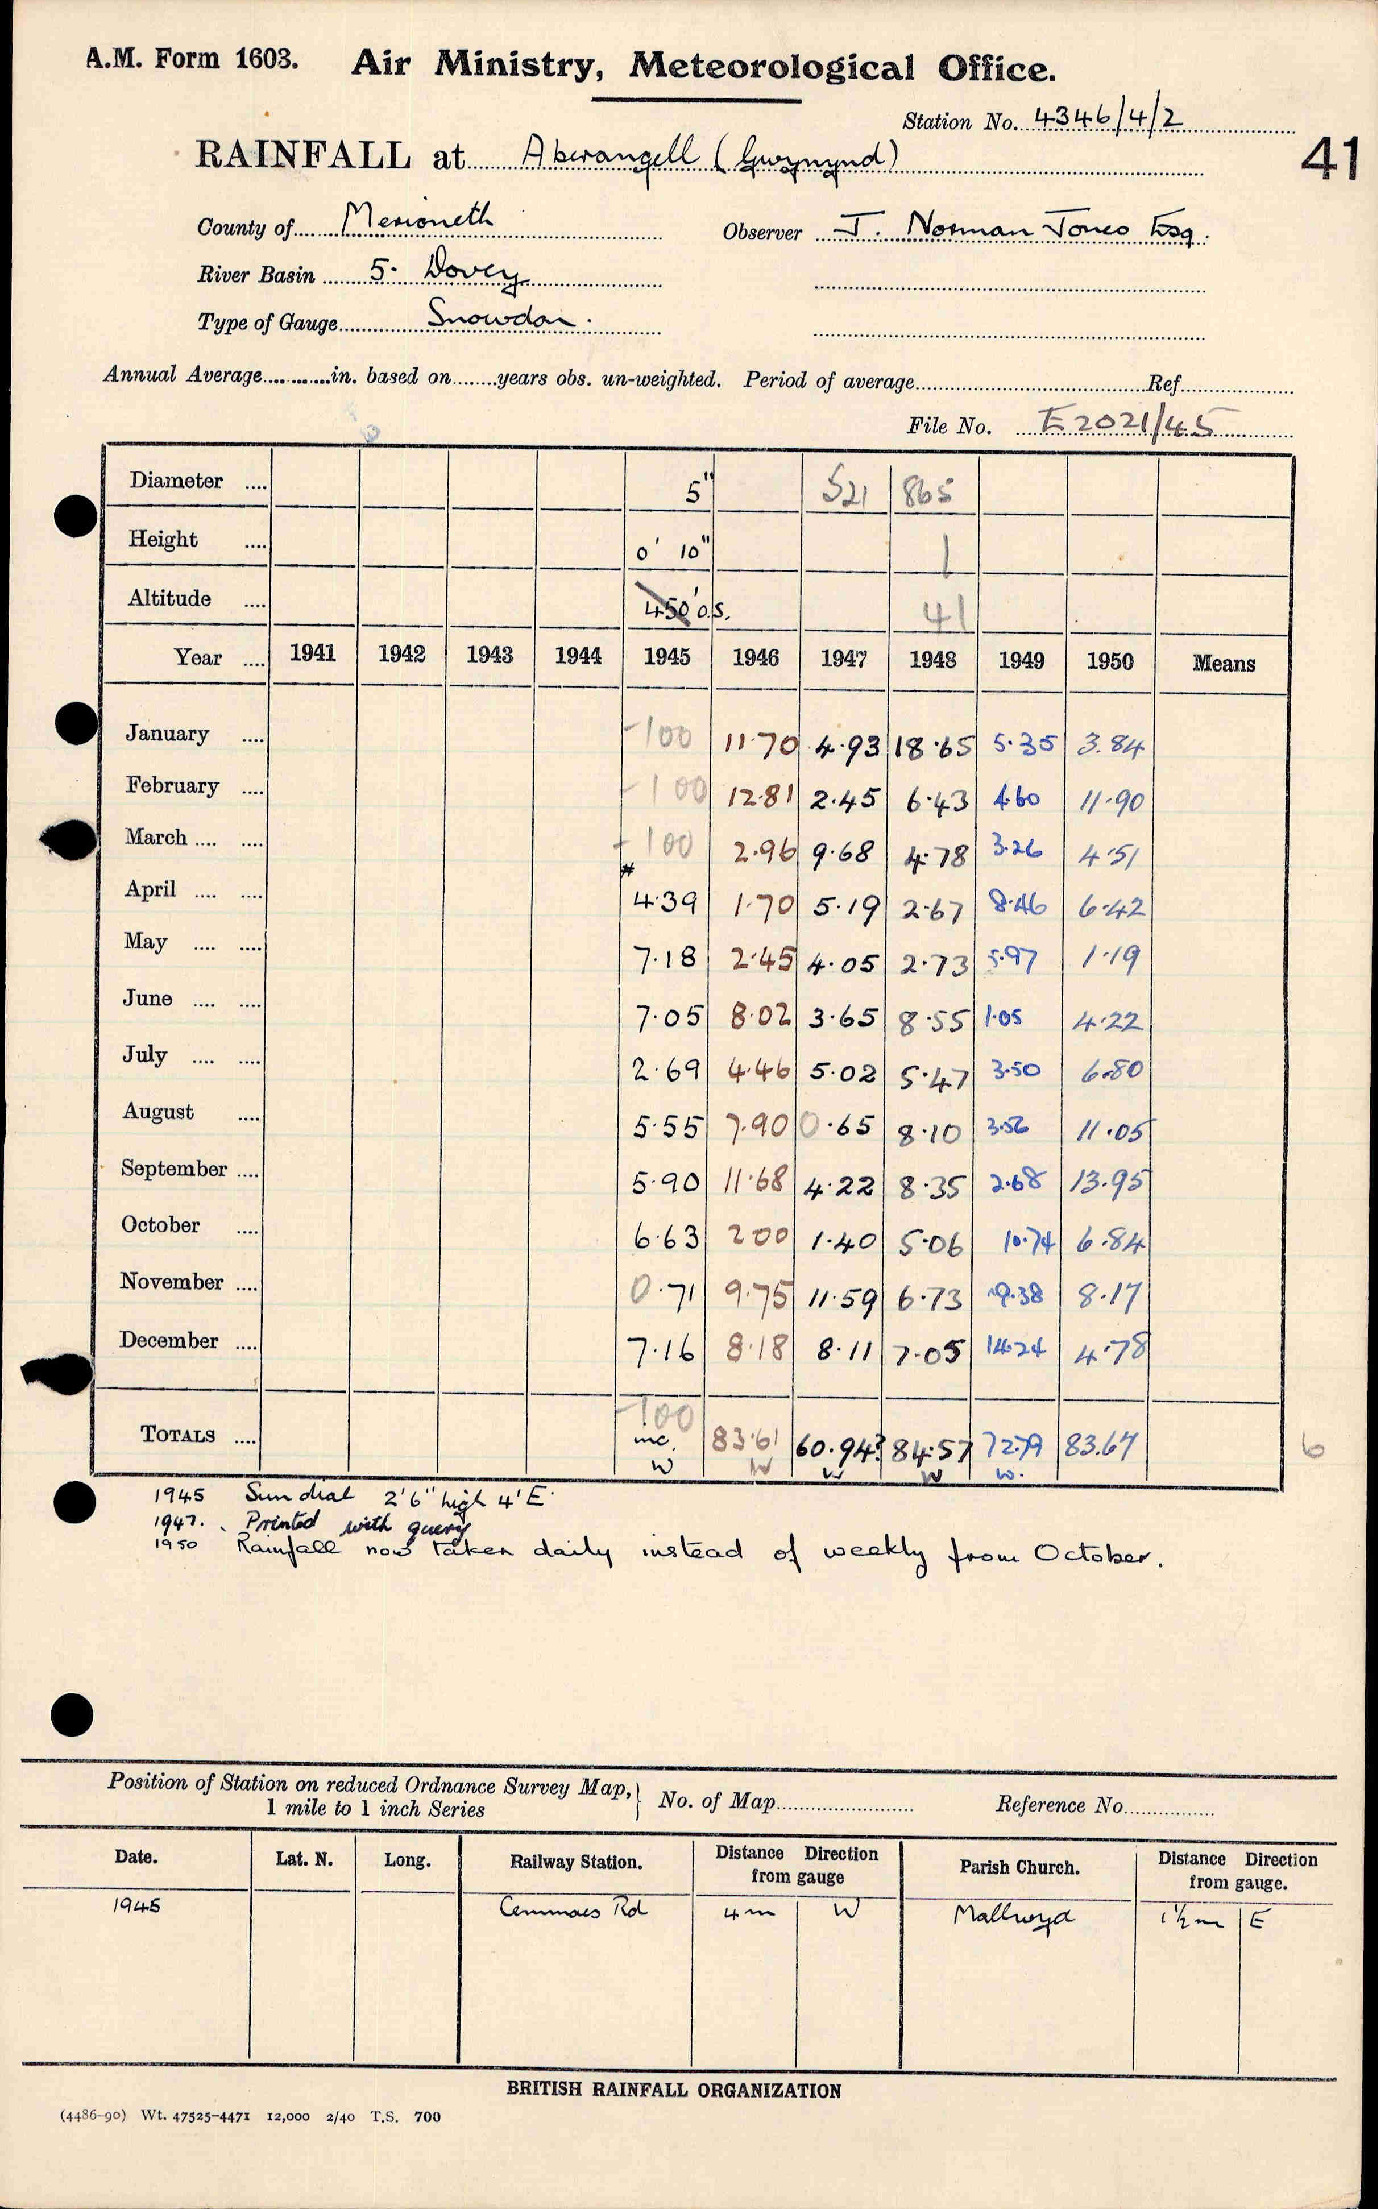 A.M. Form 1603. Air Ministry, Meteorological Office.
Station No. 4346/4/2
RAINFALL at Aberangell (Gwynynd)
41
County of Merioneth Observer J. Norman Jones Esq.
River Basin 5. Dovey
Type of Gauge Snowdon.
Annual Average in. based on years obs. un-weighted. Period of average Ref
File No. E2021/45
Diameter 5" 521 865
Height 0' 10" 1
Altitude 450' o.s. 41
Year 1941 1942 1943 1944 1945 1946 1947 1948 1949 1950 Means
January -100 11.70 4.93 18.65 5.35 3.84
February -100 12.81 2.45 6.43 4.60 11.90
March -100 2.96 9.68 4.78 3.26 4.51
April * 4.39 1.70 5.19 2.67 8.46 6.42
May 7.18 2.45 4.05 2.73 5.97 1.19
June 7.05 8.02 3.65 8.55 1.05 4.22
July 2.69 4.46 5.02 5.47 3.50 6.80
August 5.55 7.90 0.65 8.10 3.56 11.05
September 5.90 11.68 4.22 8.35 2.68 13.95
October 6.63 2.00 1.40 5.06 10.74 6.84
November 0.71 9.75 11.59 6.73 9.38 8.17
December 7.16 8.18 8.11 7.05 14.24 4.78
-100
TOTALS inc. 83.61 60.94? 84.57 72.79 83.67 6
W W W W W.
1945 Sundial 2'6" high 4' E.
1947. Printed with query
1950 Rainfall now taken daily instead of weekly from October.
Position of Station on reduced Ordnance Survey Map, 1 mile to 1 inch Series No. of Map Reference No.
Date. Lat. N. Long. Railway Station. Distance Direction from gauge Parish Church. Distance Direction from gauge.
1945 Cemmaes Rd 4m W Mallwyd 1½m E
BRITISH RAINFALL ORGANIZATION
(4486-90) Wt. 47525-4471 12,000 2/40 T.S. 700